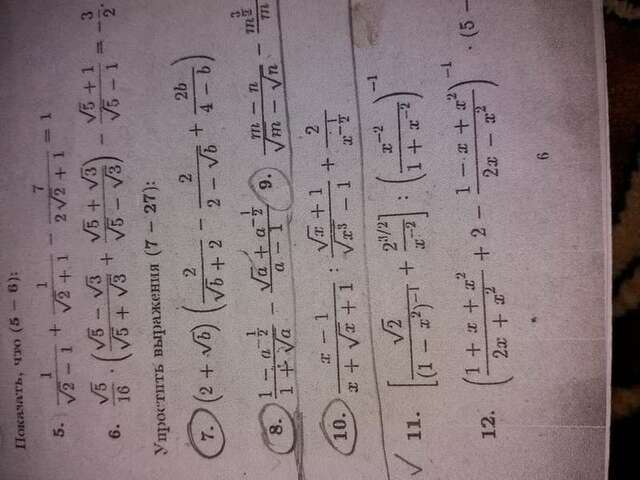 Показать, что (5 − 6):
5. \frac{1}{\sqrt{2} − 1} + \frac{1}{\sqrt{2} + 1} − \frac{7}{2\sqrt{2} + 1} = 1
6. \frac{\sqrt{5}}{16} · \left(\frac{\sqrt{5} − \sqrt{3}}{\sqrt{5} + \sqrt{3}} + \frac{\sqrt{5} + \sqrt{3}}{\sqrt{5} − \sqrt{3}}\right) − \frac{\sqrt{5} + 1}{\sqrt{5} − 1} = −\frac{3}{2}.
Упростить выражения (7 − 27):
7. (2 + \sqrt{b}) \left(\frac{2}{\sqrt{b} + 2} − \frac{2}{2 − \sqrt{b}} + \frac{2b}{4 − b}\right)
8. \frac{1 − a^{−\frac{1}{2}}}{1 + \sqrt{a}} − \frac{\sqrt{a} + a^{−\frac{1}{2}}}{a − 1} 9. \frac{m − n}{\sqrt{m} − \sqrt{n}} − \frac{m^{\frac{3}{2}}}{m}
10. \frac{x − 1}{x + \sqrt{x} + 1} : \frac{\sqrt{x} + 1}{\sqrt{x^3} − 1} + \frac{2}{x^{−\frac{1}{2}}}
11. \left[\frac{\sqrt{2}}{(1 − x^2)^{−1}} + \frac{2^{3/2}}{x^{−2}}\right] : \left(\frac{x^{−2}}{1 + x^{−2}}\right)^{−1}
12. \left(\frac{1 + x + x^2}{2x + x^2} + 2 − \frac{1 − x + x^2}{2x − x^2}\right)^{−1} · (5 −
6